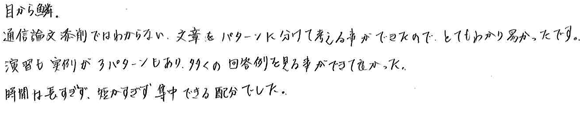 目から鱗.
通信論文添削ではわからない、文章をパターンに分けて考える事ができたので、とてもわかり易かったです。
演習も実例が3パターンもあり、多くの回答例を見る事ができて良かった。
時間は長すぎず、短かすぎず集中できる配分でした。